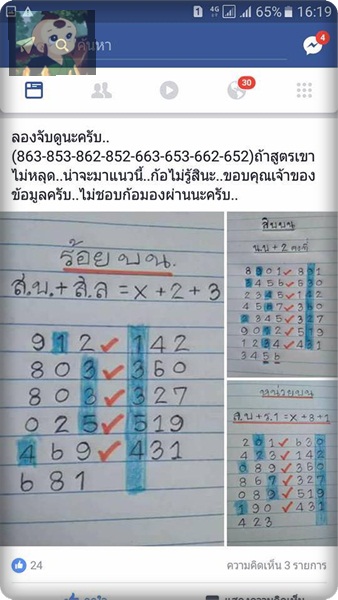 1 4G 65% 16:19
ค้นหา
4
30
ลองจับดูนะครับ..
(863-853-862-852-663-653-662-652)ถ้าสูตรเขา
ไม่หลุด..น่าจะมาแนวนี้..ก้อไม่รู้สินะ..ขอบคุณเจ้าของ
ข้อมูลครับ..ไม่ชอบก้อมองผ่านนะครับ..
ร้อยบน.
ส.บ.+ส.ล = x + 2 + 3
912✓142
803✓360
803✓327
025✓519
469✓431
681
สิบบน
น.บ + 2 คงที่
8301✓801
3456
หน่วยบน
ส.บ+ร.1 = x + 8 + 1
201✓630
423✓142
867✓327
089✓519
190✓431
423
24
ความคิดเห็น 3 รายการ